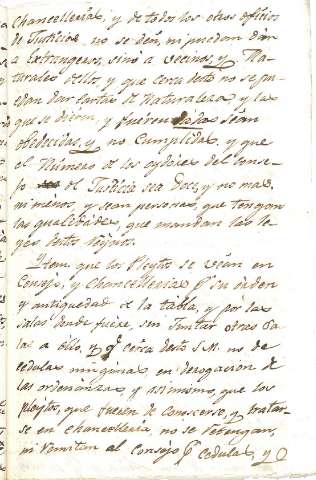 Chancellerias, y de todos los otros oficios
de Justicia no se den, ni puedan dar
a Extrangeros, sinó a vecinos, y Na-
turales dello, y que cerca desto no se pue-
dan dar Cartas de Naturaleza, y las
que se dieren, y fueren dadas sean
obedecidas, y no Cumplidas, y que
el Número de los oydores del Conse-
jo de Justicia sea Doce, y no mas,
ni menos, y sean personas, que tengan
las qualidades, que mandan las le-
yes destos Reynos.
Item, que los Pleytos se vean en
Consejo, y Chancellerias pr su orden
y antiguedad de la tabla, y por las
Salas donde fuere, sin Juntar otras Sa-
las a ello, y qe cerca desto S.M. no de
cedulas ningunas en derogacion de
las ordenanzas, y asimismo, que los
pleytos, que fueren de Conocerse, y tratar-
se en Chancelleria, no se retengan,
ni remitan al Consejo pr cedulas, y